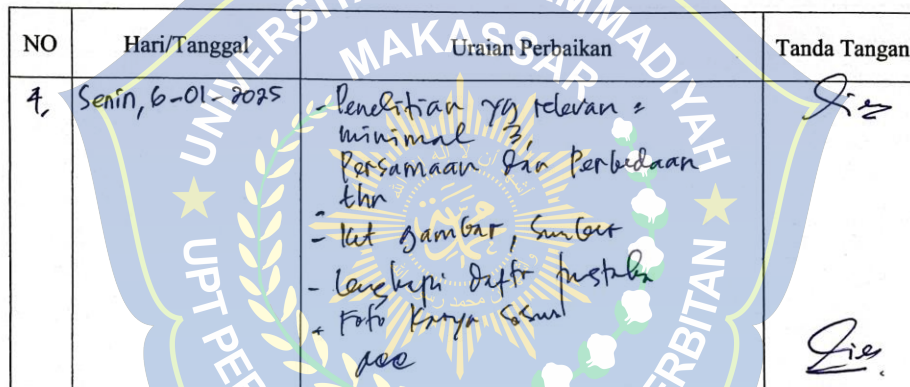 NO Hari/Tanggal Uraian Perbaikan Tanda Tangan
4, Senin, 6-01-2025 - Penelitian yg relevan =
minimal 3,
Persamaan dan Perbedaan
thn
- ket gambar, Sumber
- lengkapi daftr pustaka
- Foto Karya
UNIVERSITAS MUHAMMADIYAH
MAKASSAR
UPT PERBITAN